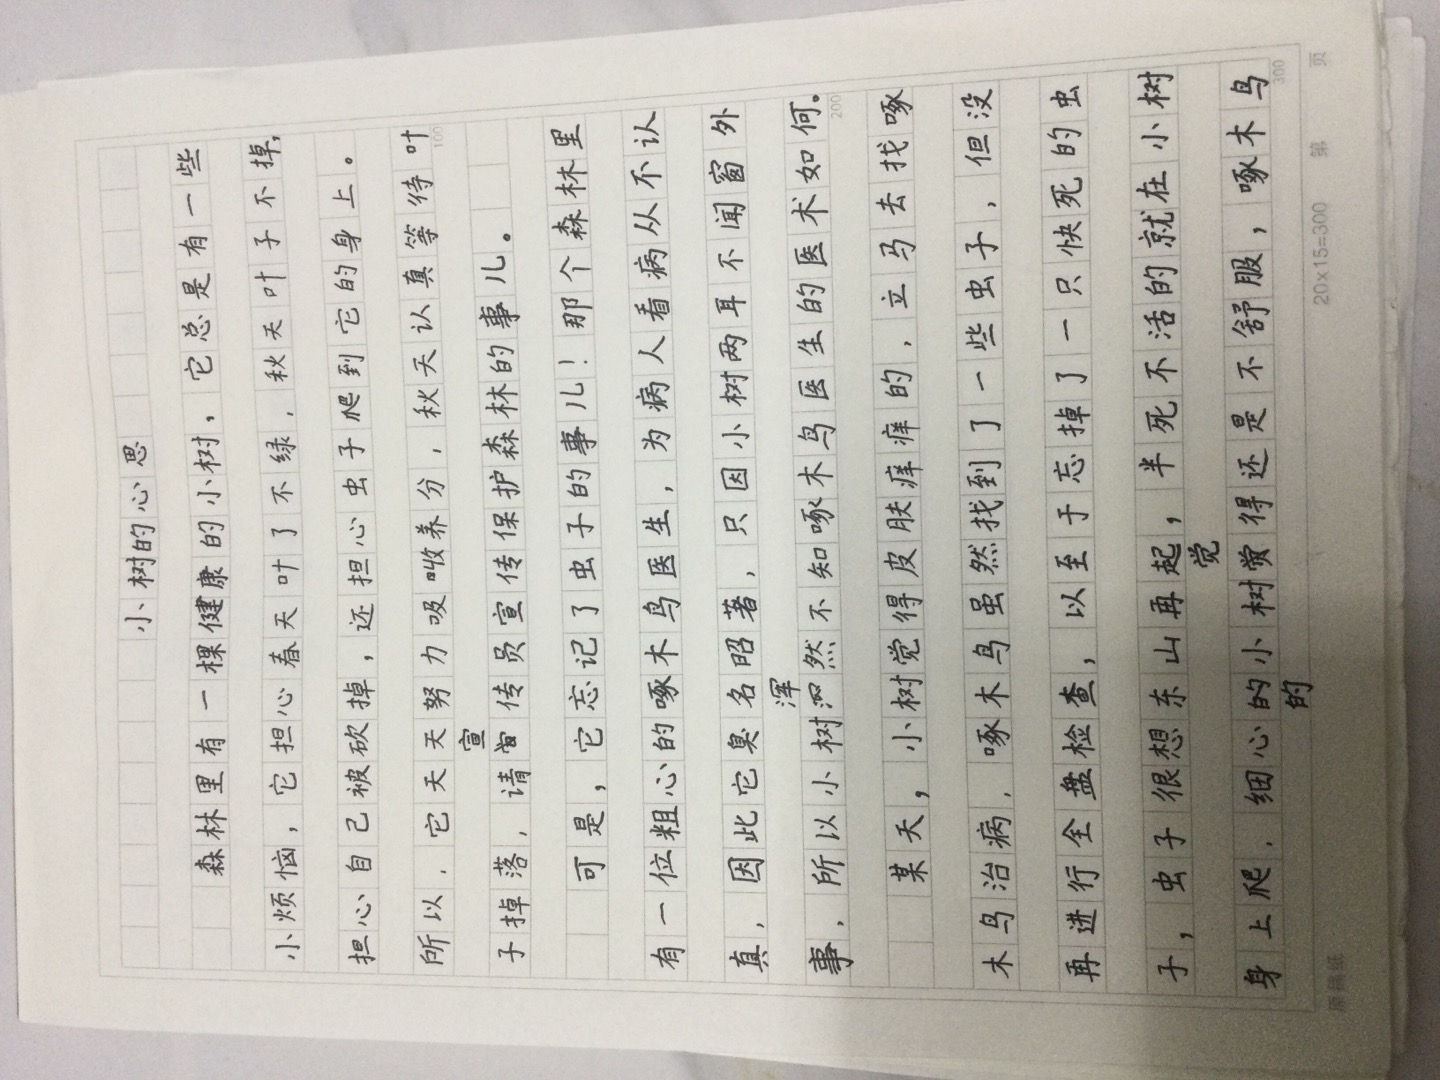 小树的心思
森林里有一棵健康的小树，它总是有一些
小烦恼，它担心春天叶了不绿，秋天叶子不掉，
担心自己被砍掉，还担心虫子爬到它的身上。
所以，它天天努力吸收养分，秋天认真等待叶
100
宣
子掉落，请传员宣传保护森林的事儿。
可是，它忘记了虫子的事儿！那个森林里
有一位粗心的啄木鸟医生，为病人看病从不认
真，因此它臭名昭著，只因小树两耳不闻窗外
浑
事，所以小树然不知啄木鸟医生的医术如何。
200
某天，小树觉得皮肤痒痒的，立马去找啄
木鸟治病，啄木鸟虽然找到了一些虫子，但没
再进行全盘检查，以至于忘掉了一只快死的虫
子，虫子很想东山再起，半死不活的就在小树
觉
身上爬，细心的小树觉得还是不舒服，啄木鸟
的
300
原稿纸 20×15=300 第 页